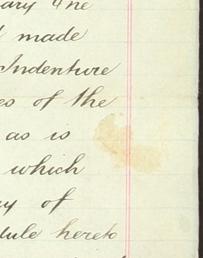 ary
made
Indenture
es of the
as is
which
ay of
dule hereto